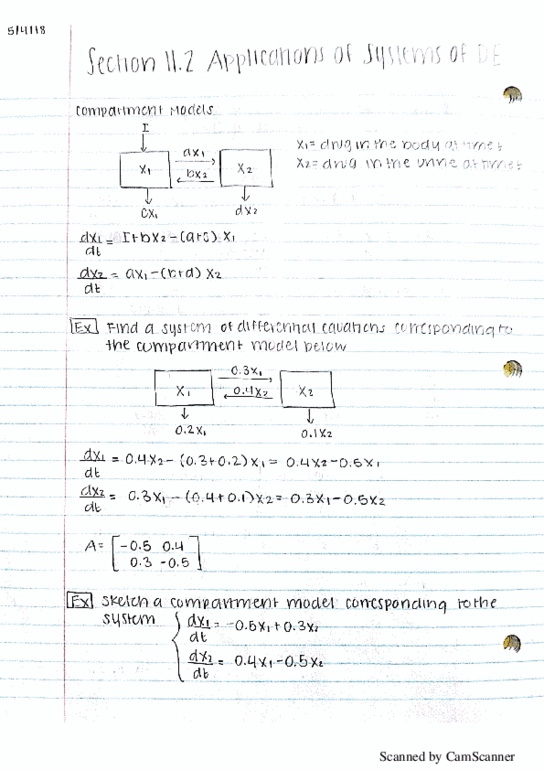 5/4/18
Section 11.2 Applications of Systems of DE
Compartment Models
I
x₁ ax₁ bx₂ x₂
cx₁ dx₂
x₁ = drug in the body at time t
x₂ = drug in the urine at time t
dx₁/dt = I + bx₂ - (a+c) x₁
dx₂/dt = ax₁ - (b+d) x₂
Ex Find a system of differential equations corresponding to
the compartment model below
x₁ 0.3x₁ 0.4x₂ x₂
0.2x₁ 0.1x₂
dx₁/dt = 0.4x₂ - (0.3+0.2)x₁ = 0.4x₂ - 0.5x₁
dx₂/dt = 0.3x₁ - (0.4+0.1)x₂ = 0.3x₁ - 0.5x₂
A = [-0.5 0.4
0.3 -0.5]
Ex Sketch a compartment model corresponding to the
system { dx₁/dt = -0.5x₁ + 0.3x₂
dx₂/dt = 0.4x₁ - 0.5x₂
Scanned by CamScanner